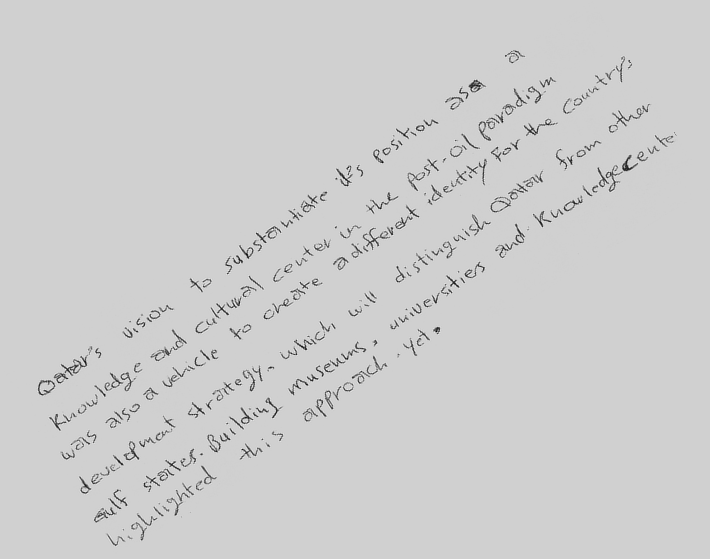 Qatar's vision to substantiate it's position as a
Knowledge and cultural center in the post-oil paradigm
was also a vehicle to create a different identity For the Country's
development strategy, which will distinguish Qatar from other
Gulf states. Building museums, universities and Knowledge Cente
highlighted this approach. yet.